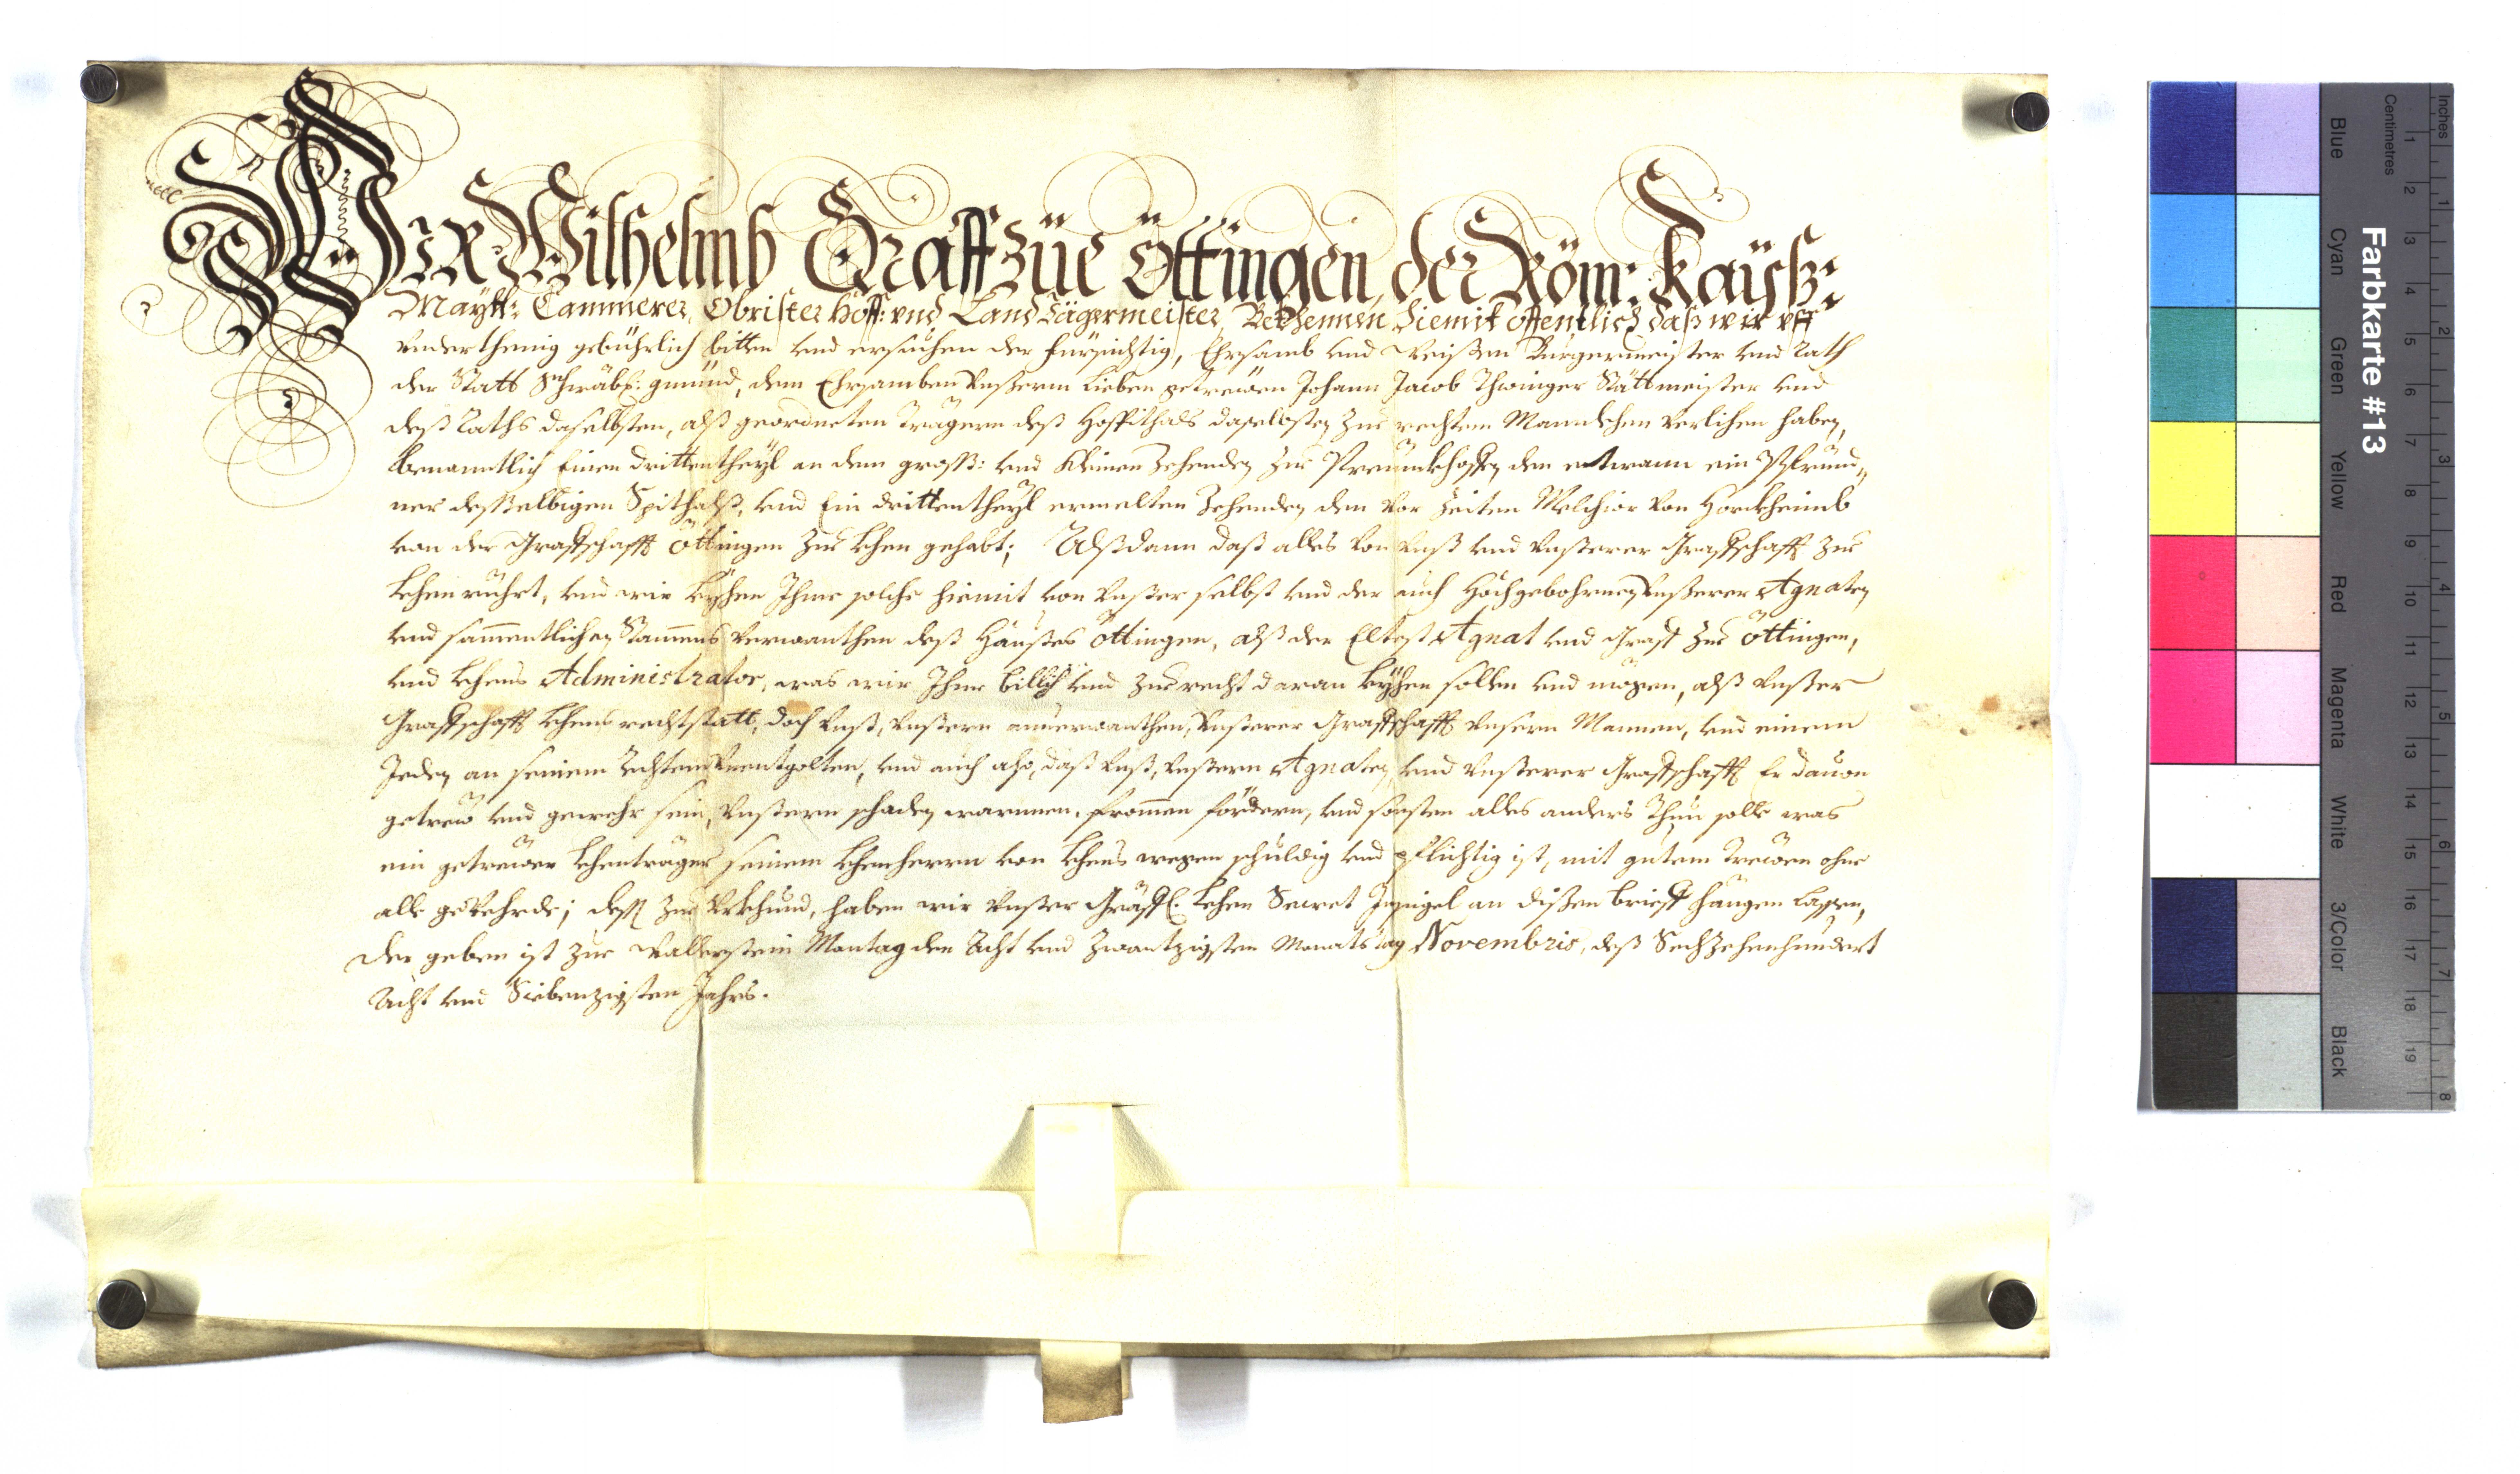 WIR Wilhelmb Graff züe Öttingen, der Röm: Kayß:
Maytt: Cammerer, Obrister Hoff: vnd Land Jägermeister, Bekhennen hiemit öffentlich daß wir vff
vnderthenig gebührlich bitten vnd ersuchen der fürsichtig, Ehrsamb vnd Weißen Burgermeister vnd Rath
der Statt Schwäb: gmünd, dem Ehrsamben Vnßerm Lieben getrewen Johann Jacob Thwinger Stättmeister vnd
deß Raths daselbsten, alß geordneten Trägern deß Hospithals daselbsten zue rechtem Mannlehen verlihen haben,
Benanntlich Einen drittentheyl an dem groß: vnd Kleinen Zehenden zue den etwann ein Pfründ„
ner desselbigen Spithalß, vnd Ein drittentheyl ermelten Zehenden den vor Zeiten Melchior von Horckheimb
von der Graffschafft Öttingen zue Lehen gehabt; Alßdann daß alles von Vnß vnd Vnßerer Graffschafft zue
Lehen rührt, vnd wir Leyhen Ihme solche hiemit von Vnßer selbst vnd der auch Hochgebohrnen Vnßerer Agnaten
vnd sammentlichen Stammens Verwanthen deß Haußes Öttingen, alß der Eltest Agnat vnd Graff zue Öttingen,
vnd Lehens Administrator, was wir Ihme billich vnd zue recht daran Leyhen sollen vnd mögen, alß Vnßer
Graffschafft Lehens recht statt, doch Vnß, Vnßern anverwanthen, Vnßerer Graffschafft Vnsern Mannen, vnd einem
Jeden an seinem Rechten Vnentgolten, vnd auch also, daß Vnß, Vnßern Agnaten, vnd Vnßerer Graffschafft Er dauon
getrew vnd gewehr sein, Vnßern schaden warnnen, frommen fördern, vnd sonsten alles anders thun solle was
ein getrewer Lehenträger seinem Lehenherrn von Lehens wegen schuldig vnd pflichtig ist, mit gutem trewen ohne
alle gevehrde; deß zue Vrkhund, haben wir Vnßer Gräffl. Lehen Secret Innsigel an dißen brieff hangen lassen,
der geben ist zue Wallerstein Montag den Acht vnd Zwantzigsten Monatstag Novembris, deß Sechzehenhundert
Acht vnd Siebenzigsten Jahrs.
Farbkarte #13
Inches
Centimetres
1
2
3
4
5
6
7
8
9
10
11
12
13
14
15
16
17
18
19
1
2
3
4
5
6
7
8
Blue
Cyan
Green
Yellow
Red
Magenta
White
3/Color
Black